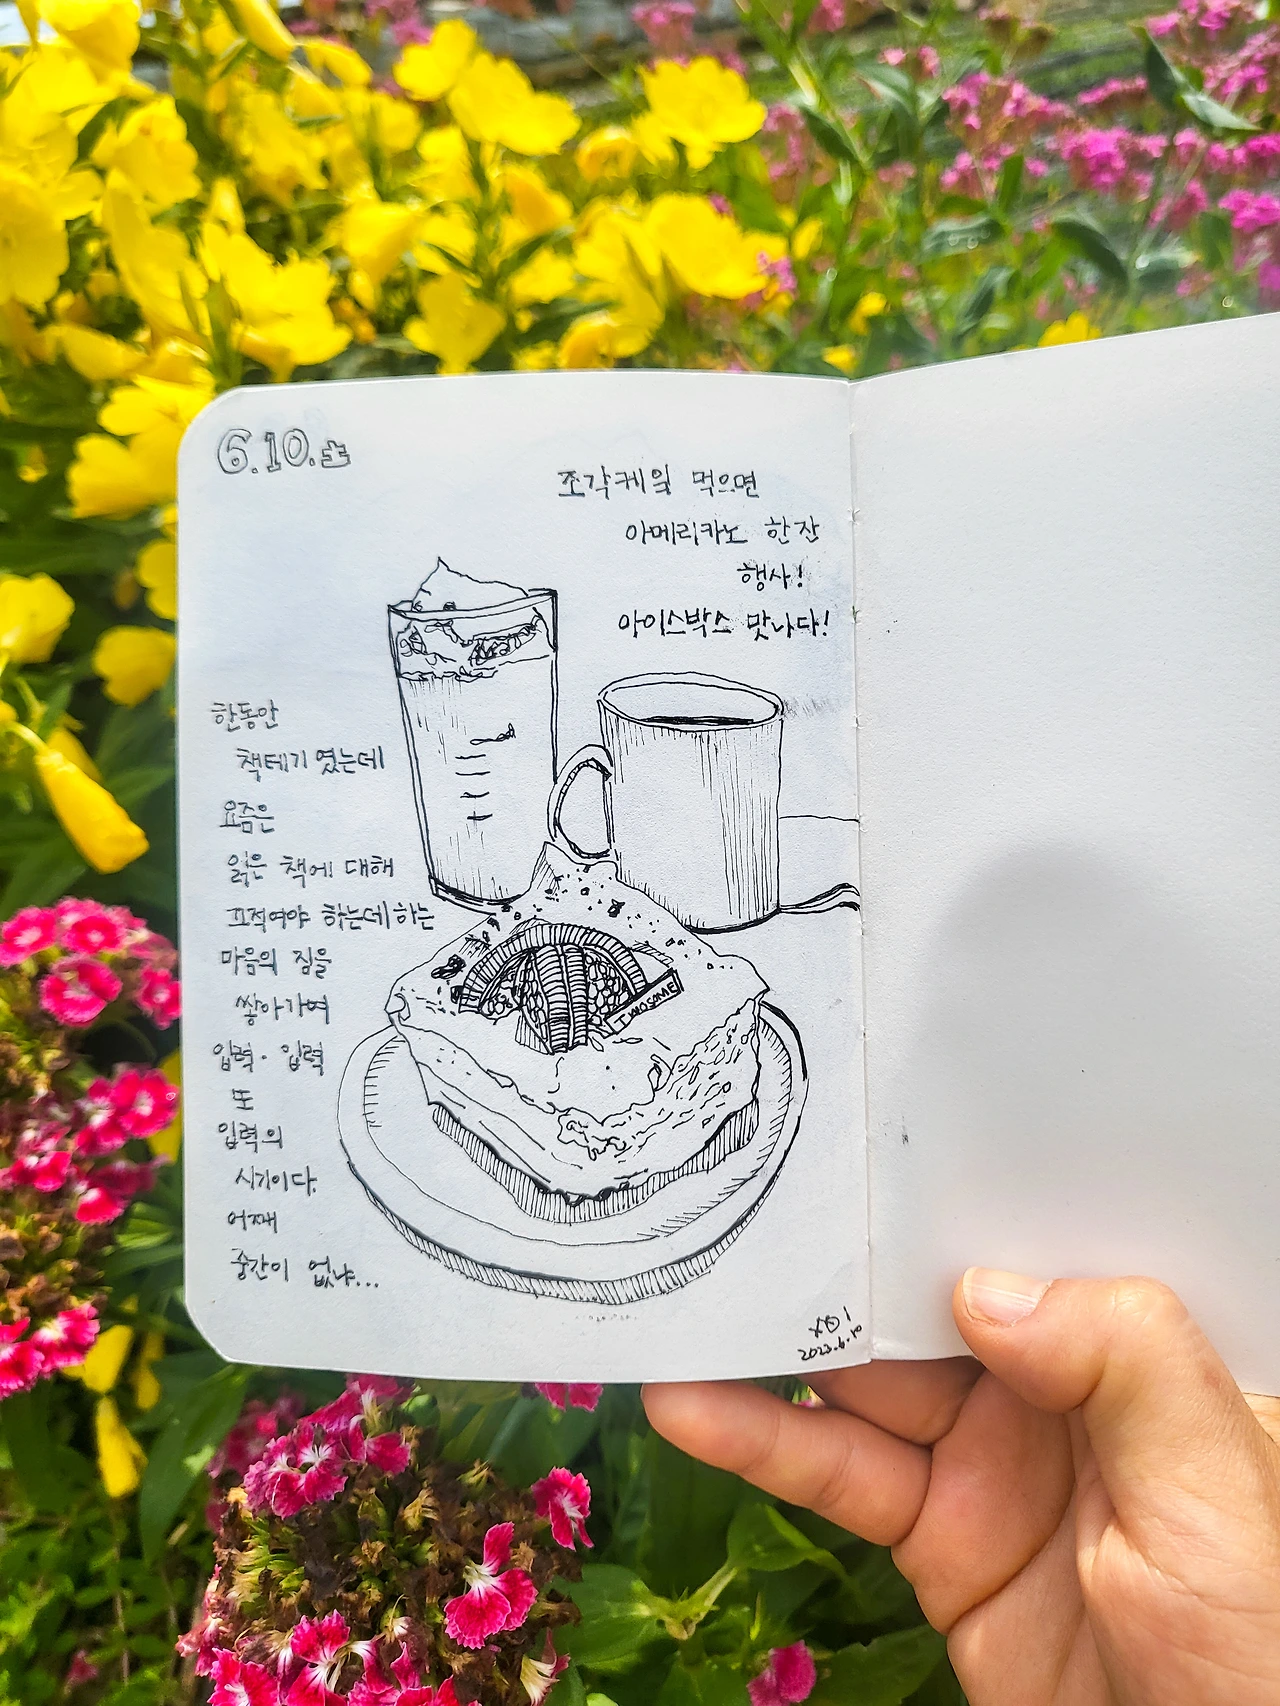 6.10.土
조각케잌 먹으면
아메리카노 한잔
행사!
아이스박스 맛나다!
한동안
책테기였는데
요즘은
읽은 책에 대해
끄적여야 하는데하는
마음의 짐을
쌓아가며
입력· 입력
또
입력의
시기이다.
어째
중간이 없냐...
TWOSOME
2023.6.10